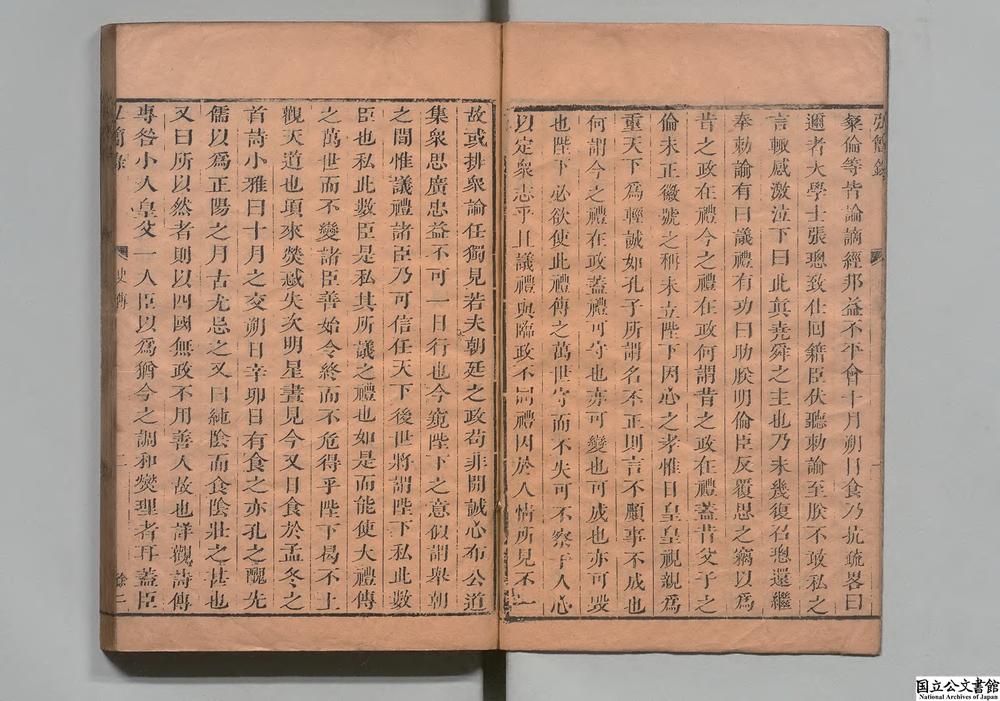 弘簡錄
一
桑倫等皆論謫經邦益不平會十月朔日食乃抗疏畧曰
邇者大學士張璁致仕回籍臣伏聽勅諭至朕不敢私之
言輙感激泣下曰此真堯舜之主也乃未幾復召璁還繼
奉勅諭有曰議禮有功曰助朕明倫臣反覆思之竊以爲
昔之政在禮今之禮在政何謂昔之政在禮蓋昔父子之
倫未正徽號之稱未立陛下因心之孝惟日皇皇視親爲
重天下爲輕誠如孔子所謂名不正則言不順事不成也
何謂今之禮在政蓋禮可守也亦可變也可成也亦可毁
也陛下必欲使此禮傳之萬世守而不失可不察乎人心
以定衆志乎且議禮與臨政不同禮因於人情所見不一
故或排衆論任獨見若夫朝廷之政苟非開誠心布公道
集衆思廣忠益不可一日行也今窺陛下之意似謂舉朝
之間惟議禮諸臣乃可信任天下後世將謂陛下私此數
臣也私此數臣是私其所議之禮也如是而能使大禮傳
之萬世而不變諸臣善始令終而不危得乎陛下曷不上
觀天道也項來熒惑失次明星晝見今又日食於孟冬之
首詩小雅曰十月之交朔日辛卯日有食之亦孔之醜先
儒以爲正陽之月古尤忌之又曰純陰而食陰壯之甚也
又曰所以然者則以四國無政不用善人故也詳觀詩傳
專咎小人皇父一人臣以爲猶今之調和燮理者耳蓋臣
弘簡錄
史傳
二
餘二
国立公文書館
National Archives of Japan